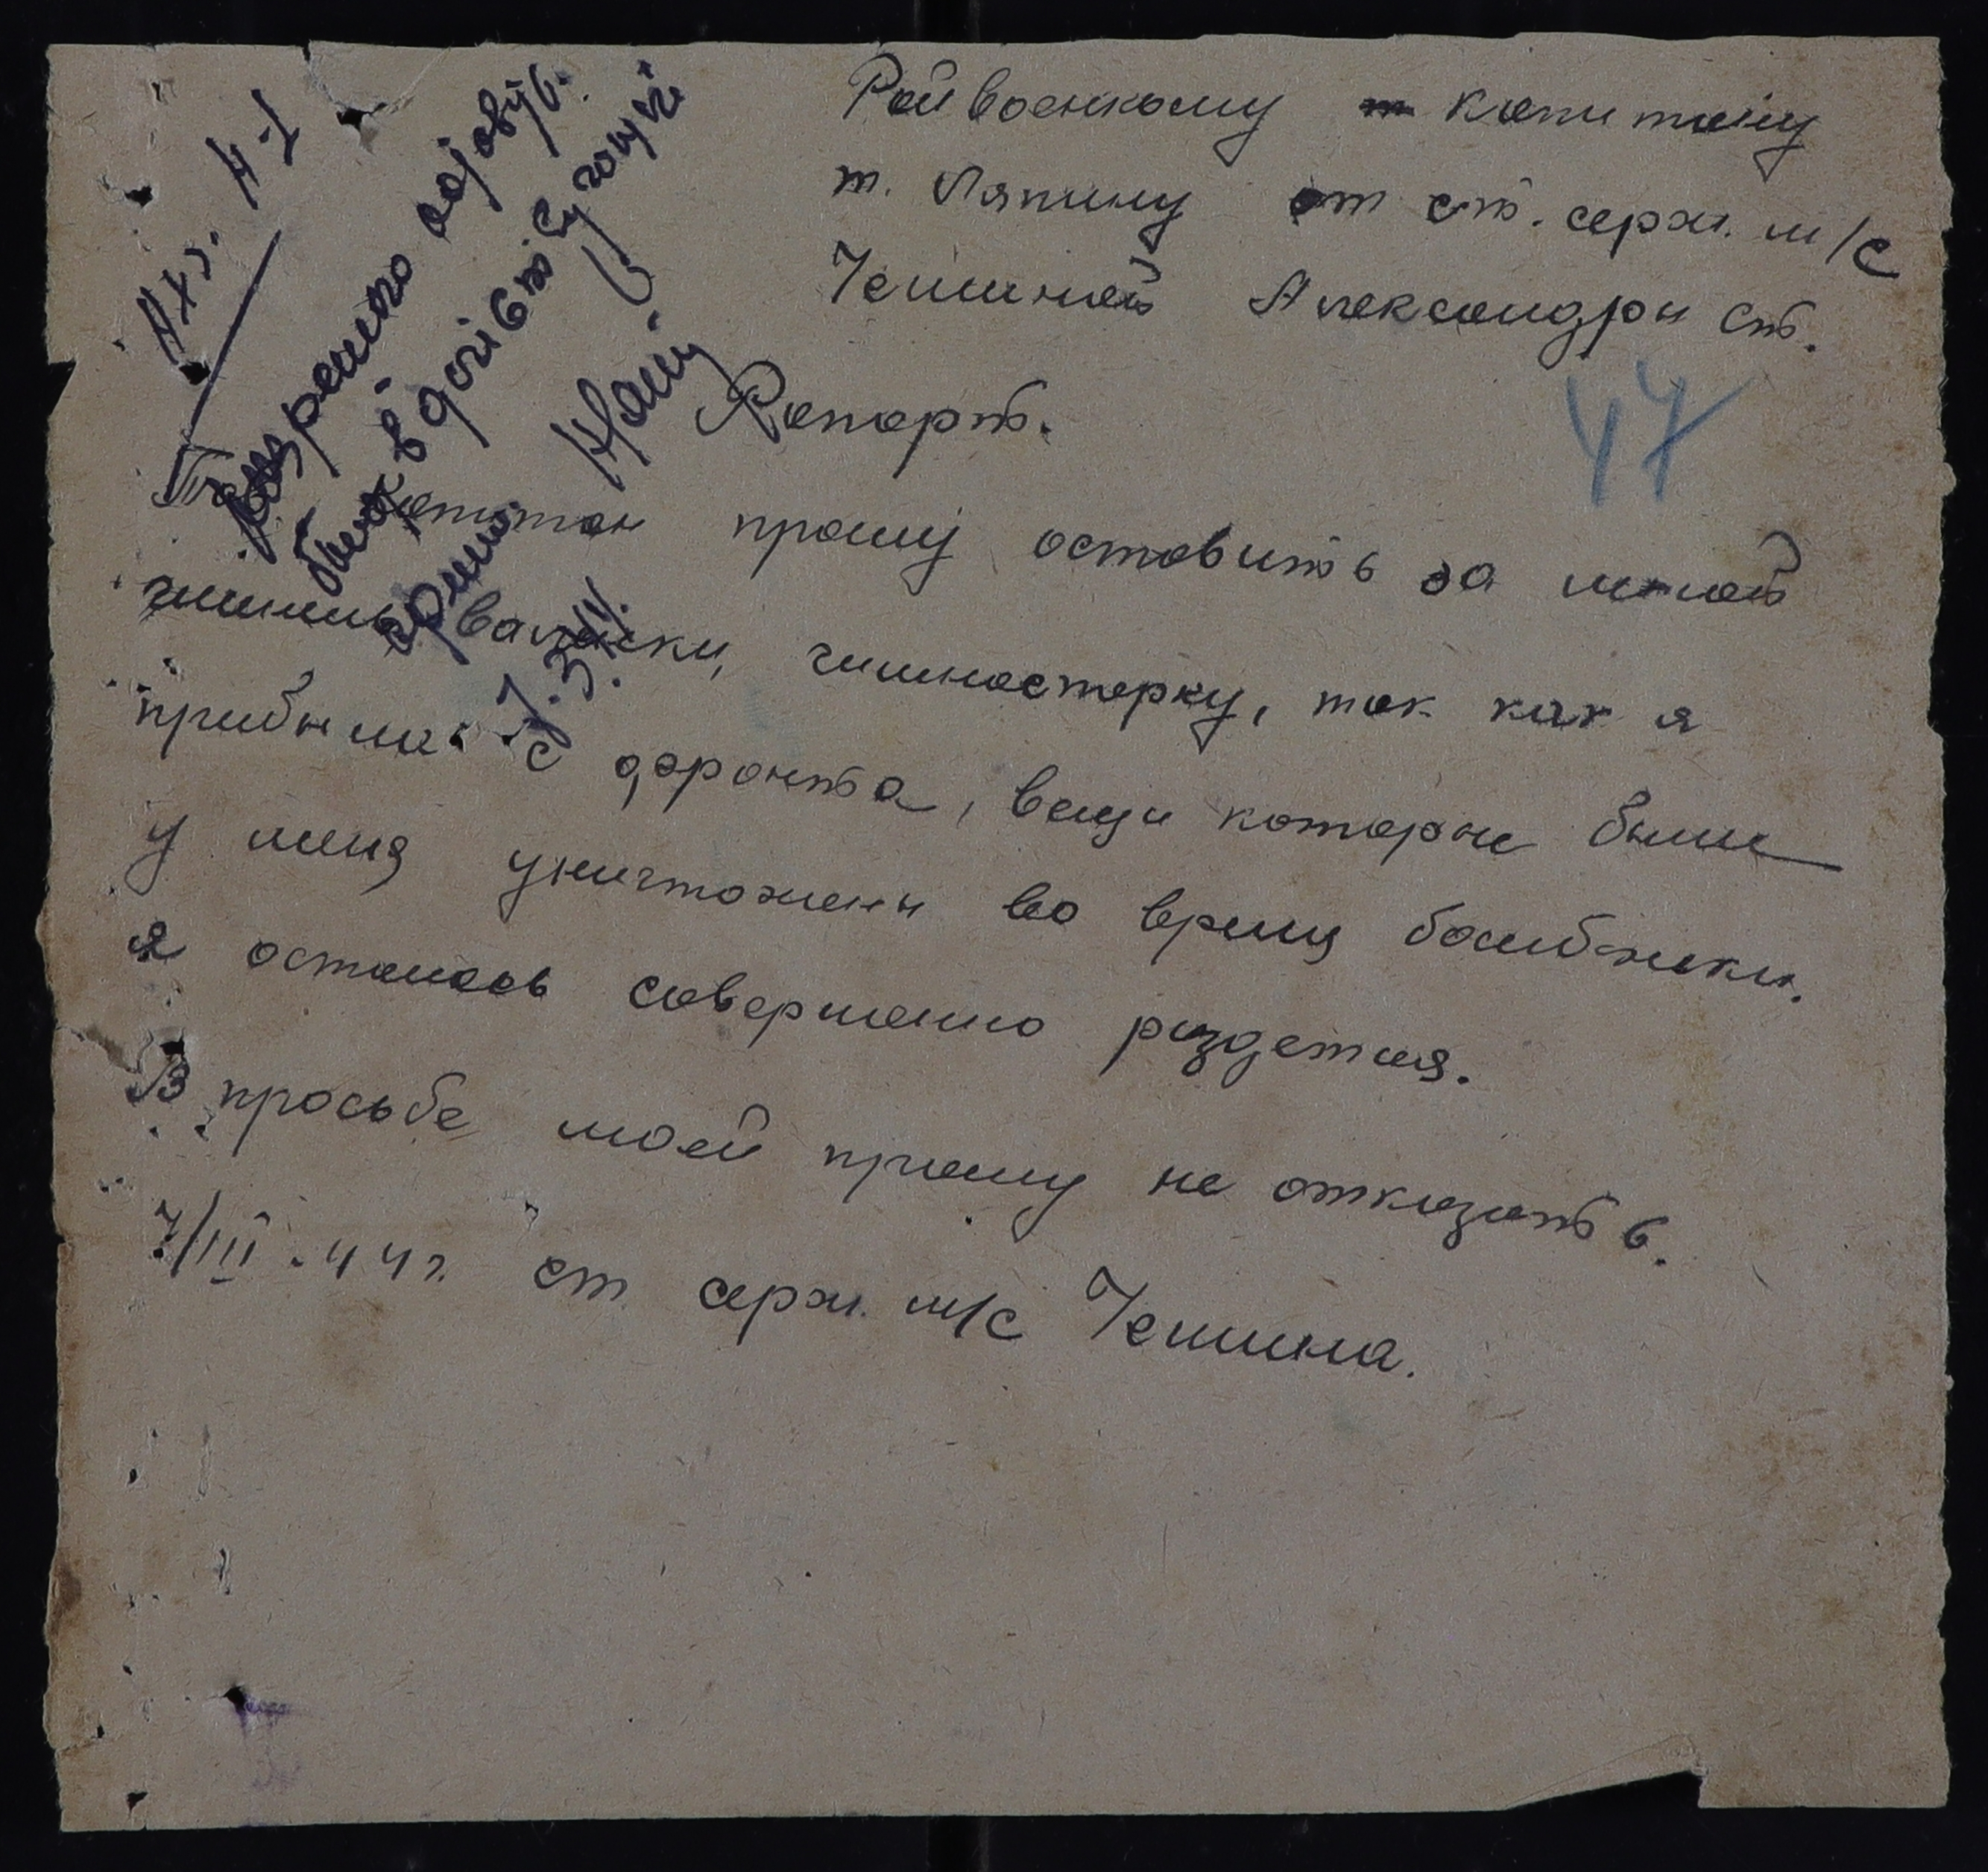 Райвоенкому капитану
т. Ляпину от ст. серж. м/с
Чешиной Александры Ст.
47
Рапорт.
Т. капитан прошу оставить за мной
шинель валенки, гимнастерку, так как я
прибыла с фронта, вещи которые были
у меня уничтожены во время бомбежки.
я осталась совершенно раздетая.
В просьбе моей прошу не отказать.
7/III.44 г. ст серж. м/с Чешина.
Разрешаю
7.3.44.